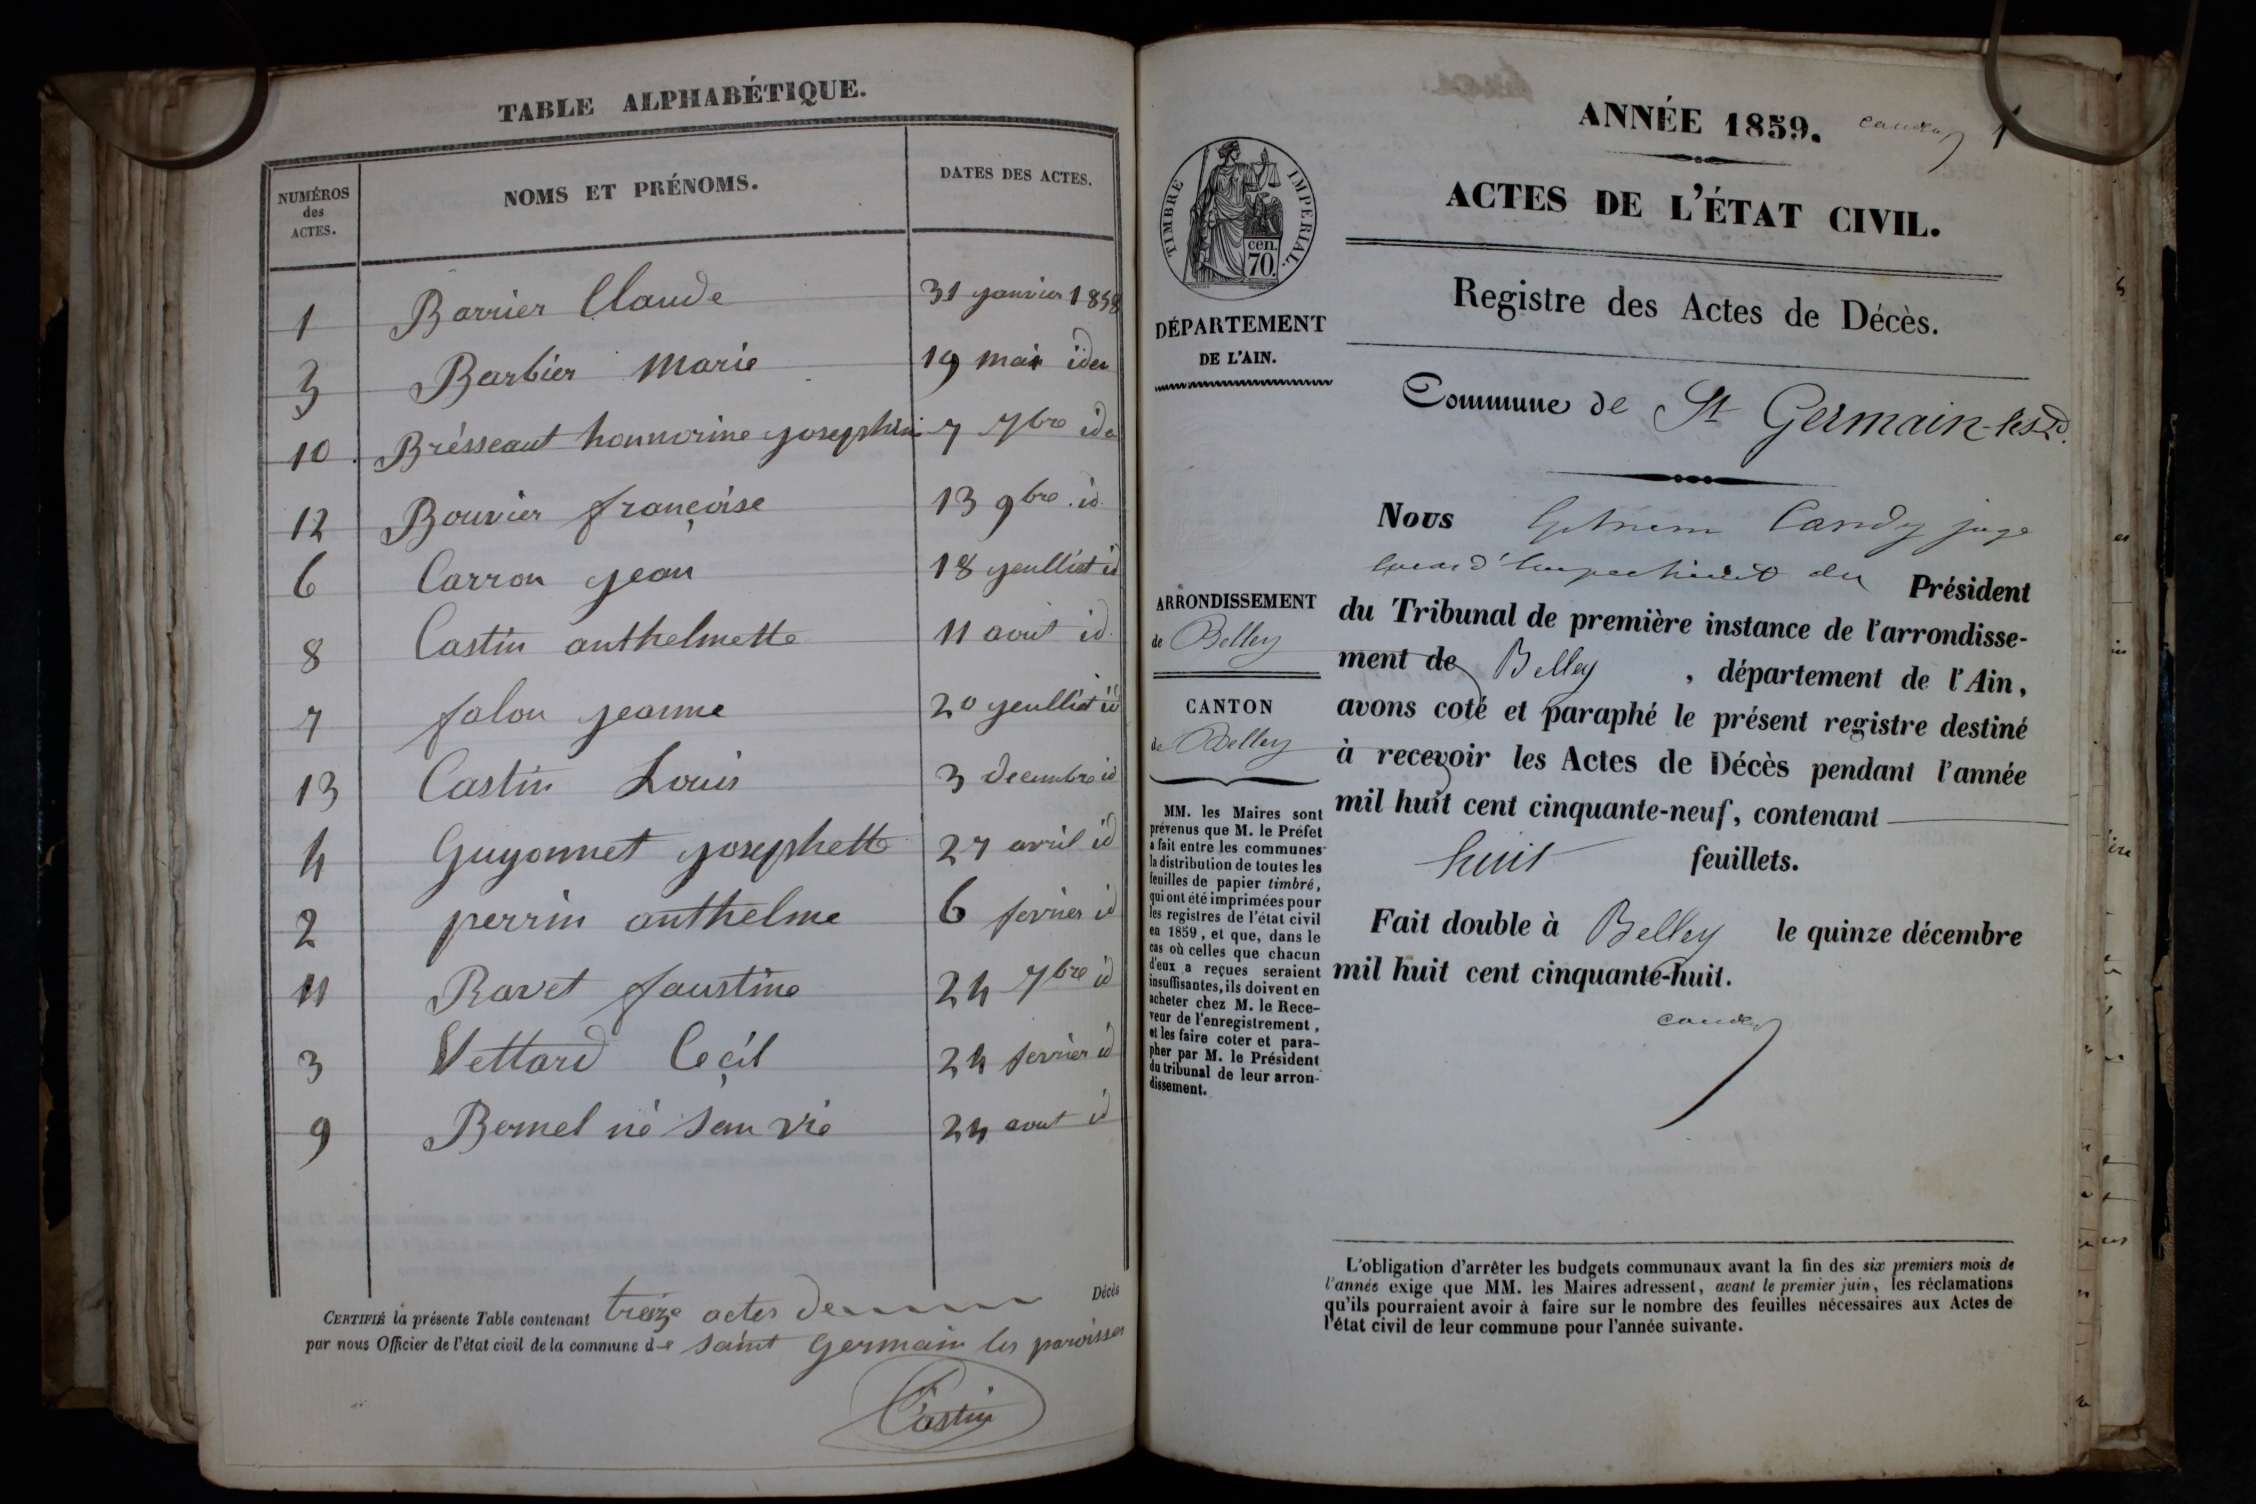 TABLE ALPHABÉTIQUE.
NUMÉROS des ACTES. NOMS ET PRÉNOMS. DATES DES ACTES.
1 Barrier Claude 31 janvier 1858
3 Barbier Marie 19 mai iden
10 Brésseaut honnorine josephine 7 7bre ide
12 Bouvier françoise 13 9bre. id.
6 Carron jean 18 jeulliet id
8 Castin anthelmette 11 aout id.
7 falon jeanne 20 jeulliet id
13 Castin Louis 3 decembre id
4 Guyonnet josephette 27 avril id
2 perrin anthelme 6 fevrier id
11 Ravet faustine 24 7bre id
3 Vettard Ceçil 24 fevrier id
9 Bornel né san vie 24 aout id
CERTIFIÉ la présente Table contenant treize actes de Décès
par nous Officier de l'état civil de la commune de saint germain les paroisses
Castin
ANNÉE 1859. 1
ACTES DE L'ÉTAT CIVIL.
Registre des Actes de Décès.
TIMBRE IMPERIAL.
cen.
70.
DÉPARTEMENT
DE L'AIN.
Commune de St Germain-les-P.
ARRONDISSEMENT
de Belley
CANTON
de Belley
MM. les Maires sont
prévenus que M. le Préfet
a fait entre les communes
la distribution de toutes les
feuilles de papier timbré,
qui ont été imprimées pour
les registres de l'état civil
en 1859, et que, dans le
cas où celles que chacun
d'eux a reçues seraient
insuffisantes, ils doivent en
acheter chez M. le Rece-
veur de l'enregistrement,
et les faire coter et para-
pher par M. le Président
du tribunal de leur arron-
dissement.
Nous Candy juge
d'empechement du Président
du Tribunal de première instance de l'arrondisse-
ment de Belley, département de l'Ain,
avons coté et paraphé le présent registre destiné
à recevoir les Actes de Décès pendant l'année
mil huit cent cinquante-neuf, contenant
huit feuillets.
Fait double à Belley le quinze décembre
mil huit cent cinquante-huit.
Candy
L'obligation d'arrêter les budgets communaux avant la fin des six premiers mois de
l'année exige que MM. les Maires adressent, avant le premier juin, les réclamations
qu'ils pourraient avoir à faire sur le nombre des feuilles nécessaires aux Actes de
l'état civil de leur commune pour l'année suivante.